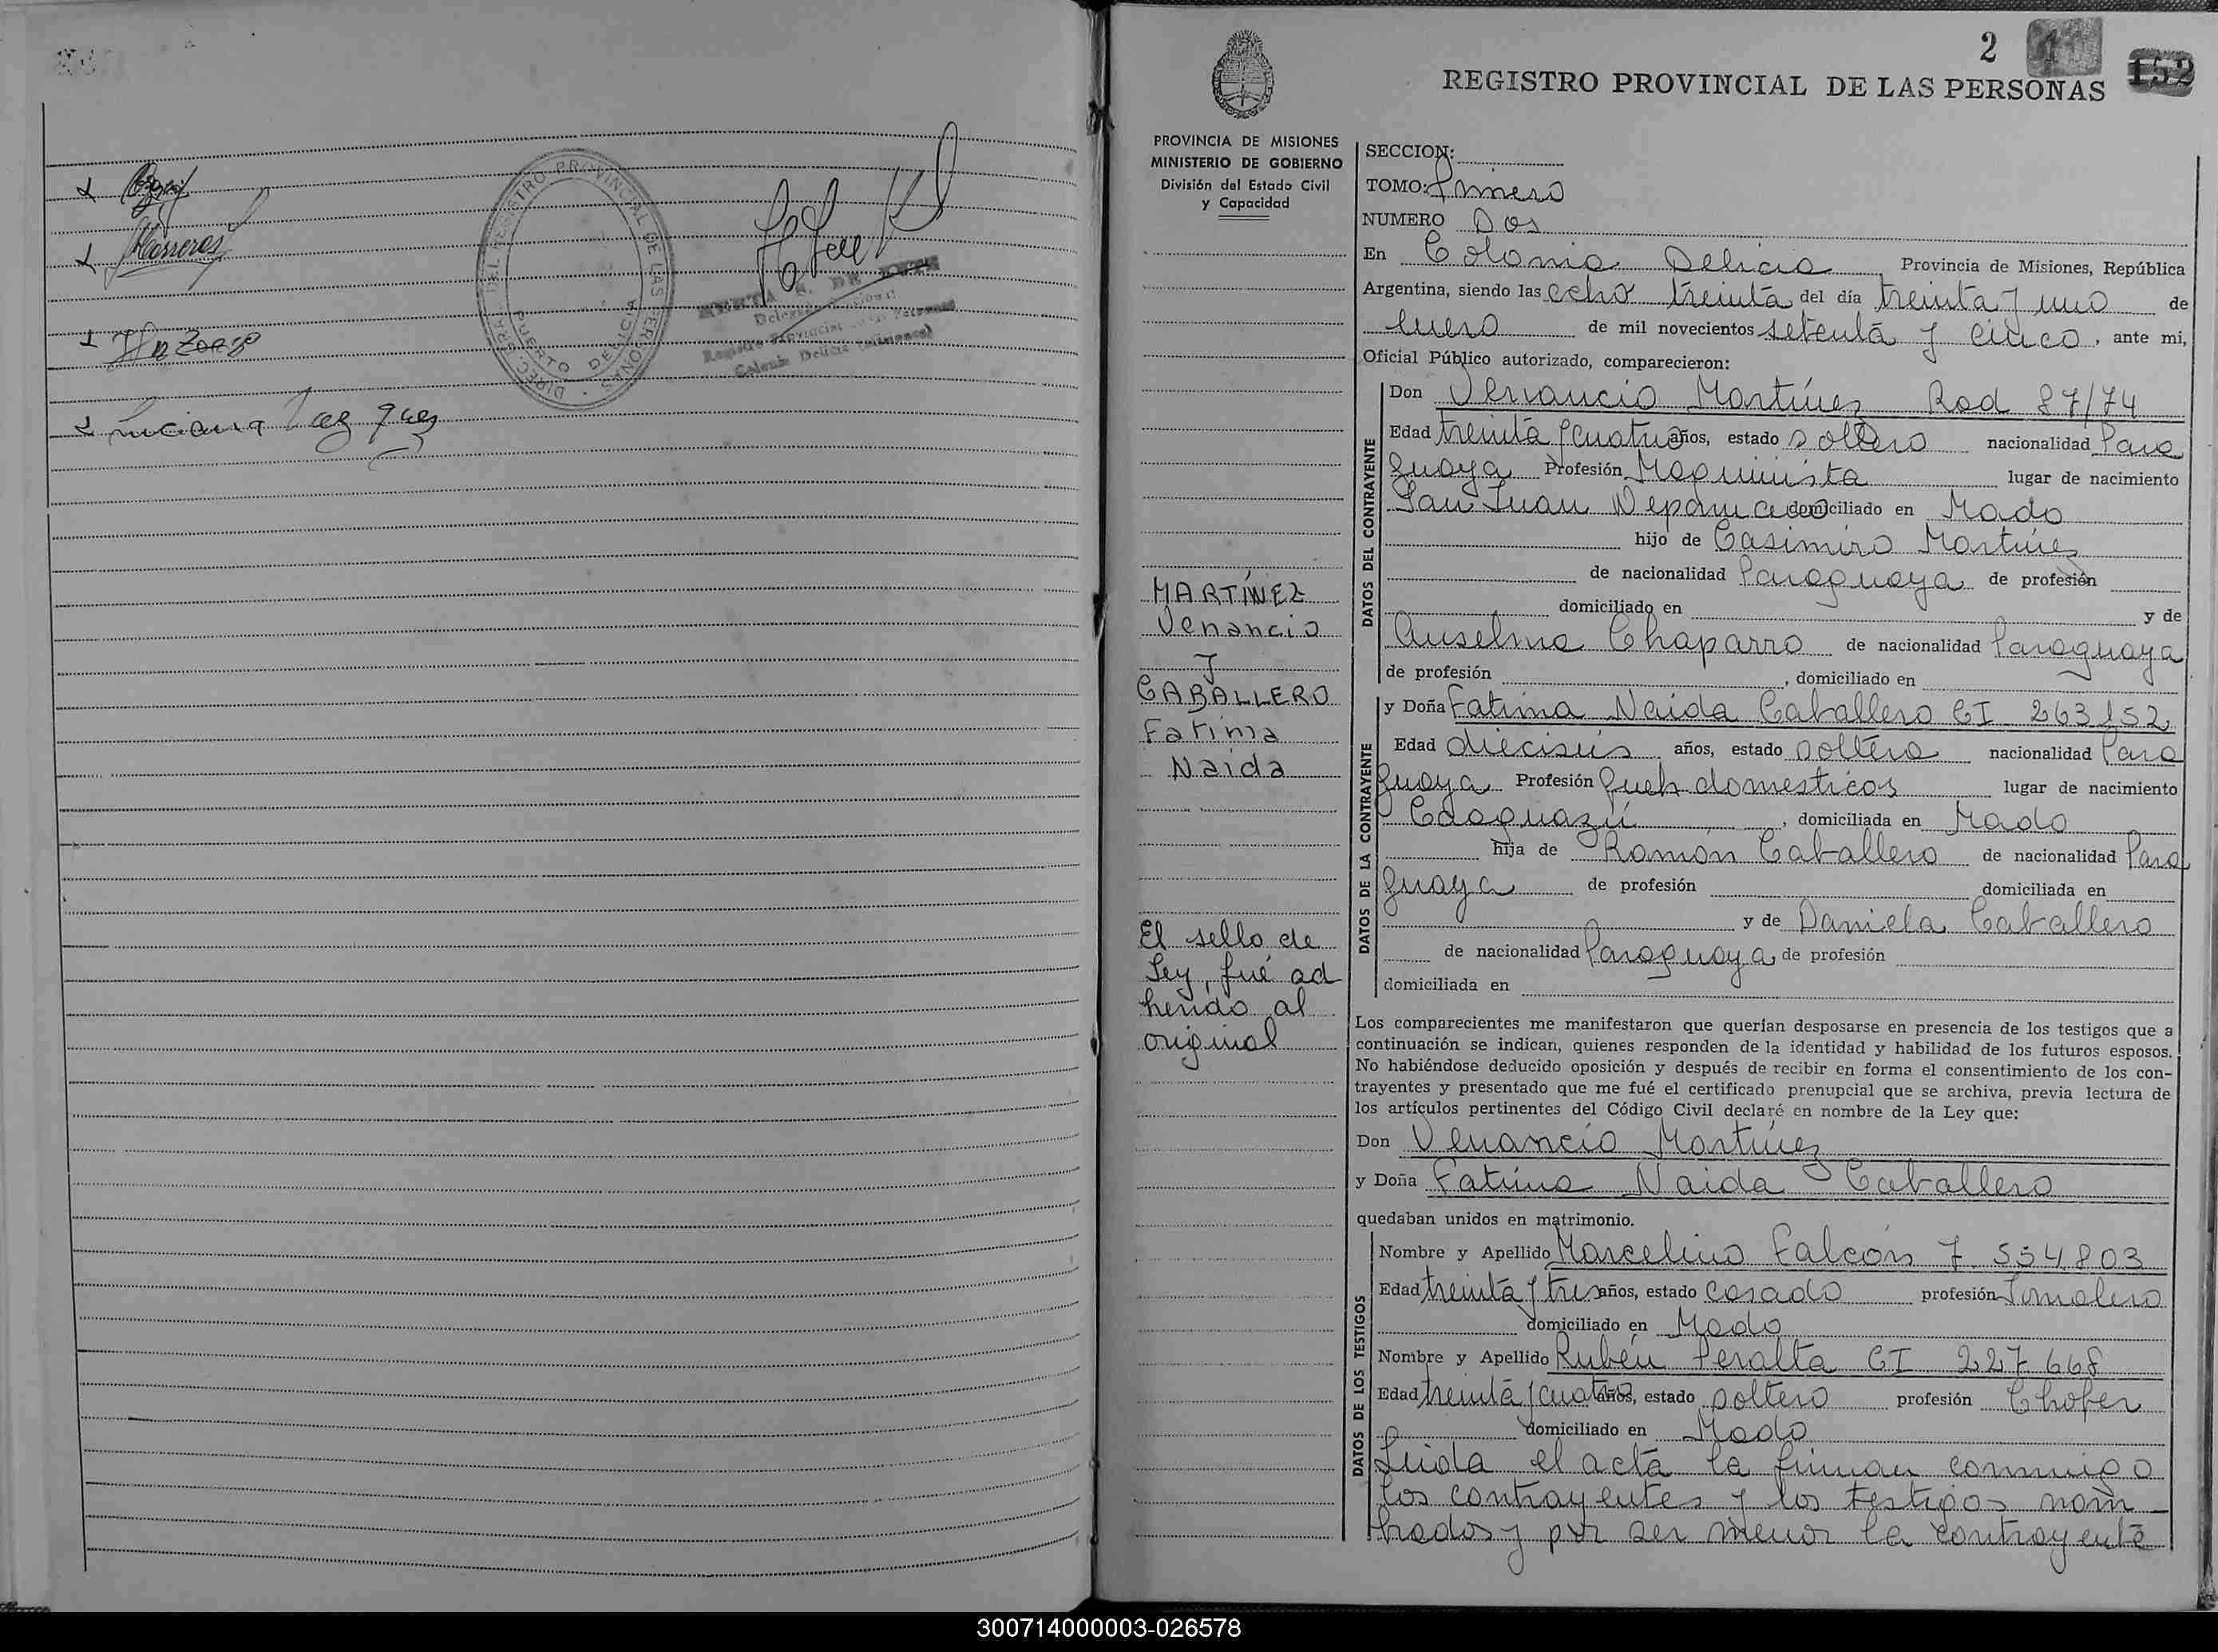 DIREC. GRAL. DEL REGISTRO PROVINCIAL DE LAS PERSONAS
PUERTO DELICIA
Registro Provincial de las Personas
Colonia Delicia (Misiones)
2
152
REGISTRO PROVINCIAL DE LAS PERSONAS
PROVINCIA DE MISIONES
MINISTERIO DE GOBIERNO
División del Estado Civil
y Capacidad
MARTÍNEZ
Venancio
y
CABALLERO
Fatima
Naida
El sello de
Ley, fué ad
herido al
original
SECCION:
TOMO: Primero
NUMERO Dos
En Colonia Delicia, Provincia de Misiones, República
Argentina, siendo las ocho treinta del día treinta y uno de
enero de mil novecientos setenta y cinco, ante mi,
Oficial Público autorizado, comparecieron:
DATOS DEL CONTRAYENTE
Don Venancio Martínez Rad 87/74
Edad treinta y cuatro años, estado soltero nacionalidad Para
guaya Profesión Maquinista lugar de nacimiento
San Juan Nepomuceno domiciliado en Mado
hijo de Casimiro Martínez
de nacionalidad Paraguaya de profesión
domiciliado en y de
Anselma Chaparro de nacionalidad Paraguaya
de profesión , domiciliado en
DATOS DE LA CONTRAYENTE
y Doña Fatima Naida Caballero CI 263152
Edad dieciseis años, estado soltera nacionalidad Para
guaya Profesión Queh domesticos lugar de nacimiento
Caaguazú, domiciliada en Mado
hija de Ramón Caballero de nacionalidad Para
guaya de profesión domiciliada en
y de Daniela Caballero
de nacionalidad Paraguaya de profesión
domiciliada en
Los comparecientes me manifestaron que querían desposarse en presencia de los testigos que a
continuación se indican, quienes responden de la identidad y habilidad de los futuros esposos.
No habiéndose deducido oposición y después de recibir en forma el consentimiento de los con-
trayentes y presentado que me fué el certificado prenupcial que se archiva, previa lectura de
los artículos pertinentes del Código Civil declaré en nombre de la Ley que:
Don Venancio Martínez
y Doña Fatima Naida Caballero
quedaban unidos en matrimonio.
DATOS DE LOS TESTIGOS
Nombre y Apellido Marcelino Falcón 7.554.803
Edad treinta y tres años, estado casado profesión Jornalero
domiciliado en Mado
Nombre y Apellido Rubén Peralta CI 227668
Edad treinta y cuatro años, estado soltero profesión Chofer
domiciliado en Mado
Leida el acta la firman conmigo
los contrayentes y los testigos nom
brados y por ser menor la contrayente
300714000003-026578